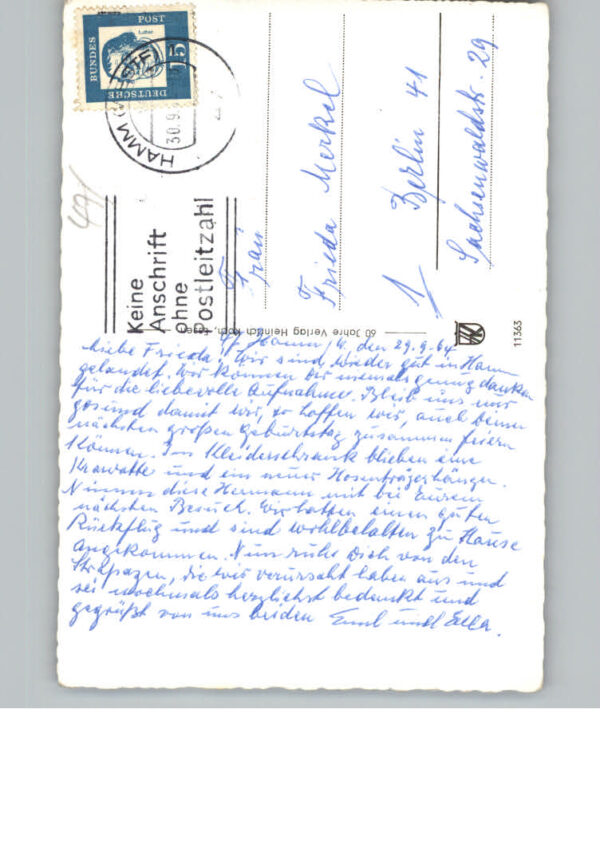 DEUTSCHE
BUNDES
POST
15
Luther
HAMM (WESTF
30.9.
Keine
Anschrift
ohne
Postleitzahl
Frau
Frieda Merkel
1 Berlin 41
Sachsenwaldstr. 29
60 Jahre Verlag Heinrich Koch, Essen
11363
Hamm/W. den 29.9.64
Liebe Frieda! Wir sind wieder gut in Hamm
gelandet. Wir können Dir niemals genug danken
für die liebevolle Aufnahme. Bleib uns nur
gesund damit wir, so hoffen wir, auch Deinen
nächsten großen Geburtstag zusammen feiern
können. Im Kleiderschrank blieben eine
Krawatte und ein neuer Hosenträgerhänger.
Nimm diese Hermann mit bei Eurem
nächsten Besuch. Wir hatten einen guten
Rückflug und sind wohlbehalten zu Hause
angekommen. Nun ruhe Dich von den
Strapazen, die wir verursacht haben aus und
sei nochmals herzlichst bedankt und
gegrüßt von uns beiden Emil und Ella.